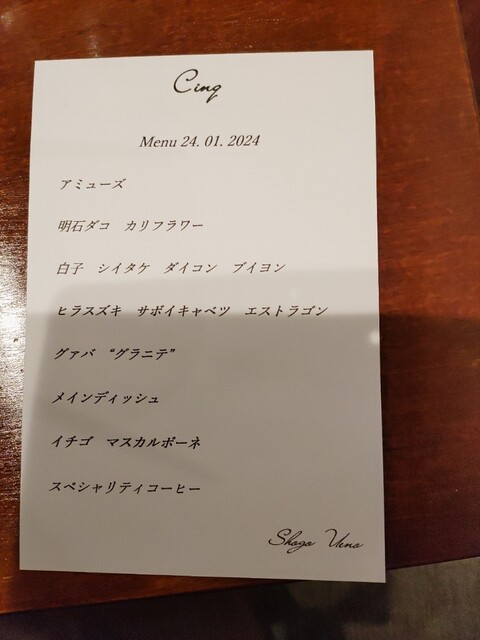 Cinq
Menu 24. 01. 2024
アミューズ
明石ダコ　カリフラワー
白子　シイタケ　ダイコン　ブイヨン
ヒラスズキ　サボイキャベツ　エストラゴン
グァバ　“グラニテ”
メインディッシュ
イチゴ　マスカルポーネ
スペシャリティコーヒー
Shogo Ueno